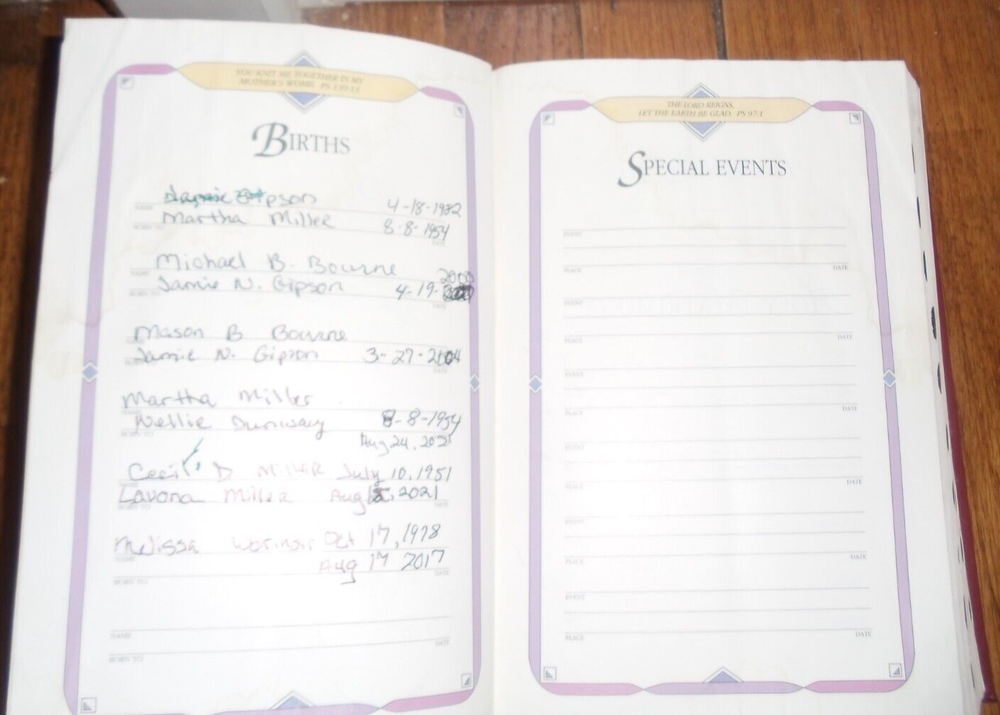 YOU KNIT ME TOGETHER IN MY
MOTHER'S WOMB. PS 139:13
BIRTHS
Jamie Gipson 4-18-1982
NAME
Martha Miller 8-8-1954
BORN TO DATE
Michael B. Bourne 2000
NAME
Jamie N. Gipson 4-19-
BORN TO DATE
Mason B Bourne
NAME
Jamie N. Gipson 3-27-2004
BORN TO DATE
Martha Miller
NAME
Nellie Dunway 8-8-1954
BORN TO DATE
Aug 24, 2021
Cecil D Miller July 10, 1951
NAME
Lavona Miller Aug , 2021
BORN TO DATE
Melissa Oct 17, 1978
NAME
Aug 17 2017
BORN TO DATE
NAME
BORN TO DATE
THE LORD REIGNS,
LET THE EARTH BE GLAD. PS 97:1
SPECIAL EVENTS
EVENT
PLACE DATE
EVENT
PLACE DATE
EVENT
PLACE DATE
EVENT
PLACE DATE
EVENT
PLACE DATE
EVENT
PLACE DATE